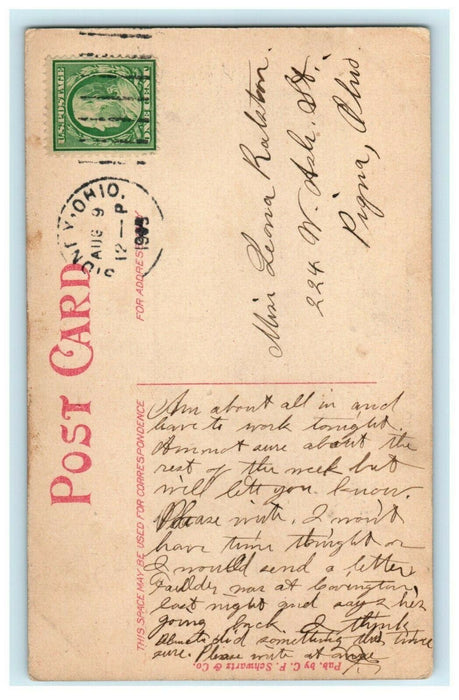 U.S. POSTAGE
ONE CENT
SIDNEY, OHIO.
AUG 9
12 — P
POST CARD
FOR ADDRESS
THIS SPACE MAY BE USED FOR CORRESPONDENCE
Miss Leona Ralston.
224 W. Ash. St.
Piqua, Ohio.
Am about all in and
have to work tonight.
Am not sure about the
rest of the week but
will lett you know.
Please write. I won't
have time thinght or
I would send a letter
was at Covington
last night and says he's
going back I think
did something this time
sure. Please write at once
Pub. by C. F. Schwartz & Co.